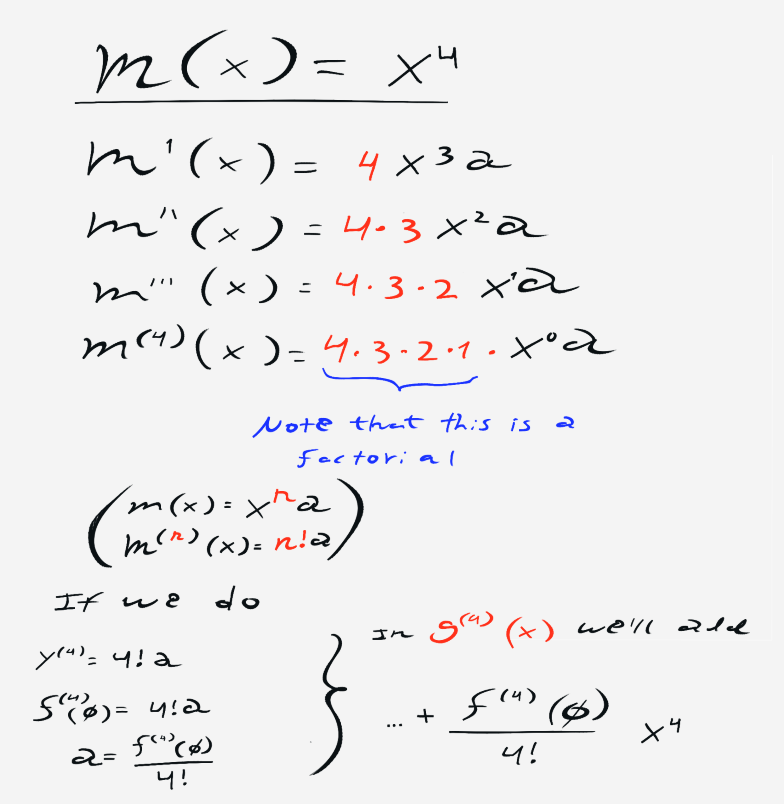 m(x) = x⁴
m'(x) = 4x³a
m''(x) = 4·3x²a
m'''(x) = 4·3·2x¹a
m⁽⁴⁾(x) = 4·3·2·1·x⁰a
Note that this is a
factorial
(m(x) = xⁿa
m⁽ⁿ⁾(x) = n!a)
If we do
y⁽⁴⁾ = 4!a
f⁽⁴⁾(ø) = 4!a
a = f⁽⁴⁾(ø)/4!
In g⁽⁴⁾(x) we'll add
... + f⁽⁴⁾(ø)/4! x⁴